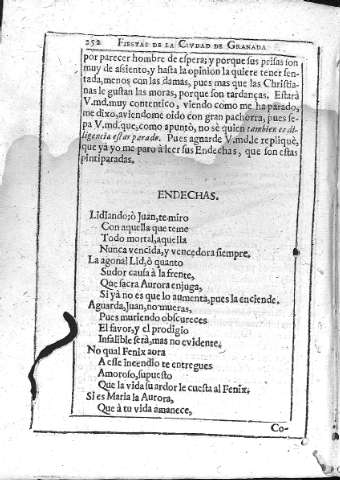 252 FIESTAS DE LA CIVDAD DE GRANADA
por parecer hombre de espera; y porque sus prisas son
muy de assiento, y hasta la opinion la quiere tener sen-
tada, menos con las damas, pues mas que las Christia-
nas le gustan las moras, porque son tardanças. Estarà
V.md. muy contentico, viendo como me ha parado,
me dixo, aviendome oido con gran pachorra, pues se-
pa V.md. que, como apuntò, no sè quien tambien es di-
ligencia estar parado. Pues aguarde V.md. le repliquè,
que yà yo me paro à leer sus Endechas, que son estas
pintiparadas.
ENDECHAS.
Lidiando, ò Juan, te miro
Con aquella que teme
Todo mortal, aquella
Nunca vencida, y vencedora siempre.
La agonal Lid, ò quanto
Sudor causa à la frente,
Que sacra Aurora enjuga,
Si yà no es que lo aumenta, pues la enciende.
Aguarda, Juan, no mueras,
Pues muriendo obscureces
El favor, y el prodigio
Infalible serà, mas no evidente.
No qual Fenix aora
A esse incendio te entregues
Amoroso, supuesto
Que la vida su ardor le cuesta al Fenix.
Si es Maria la Aurora,
Que à tu vida amanece,
Co-